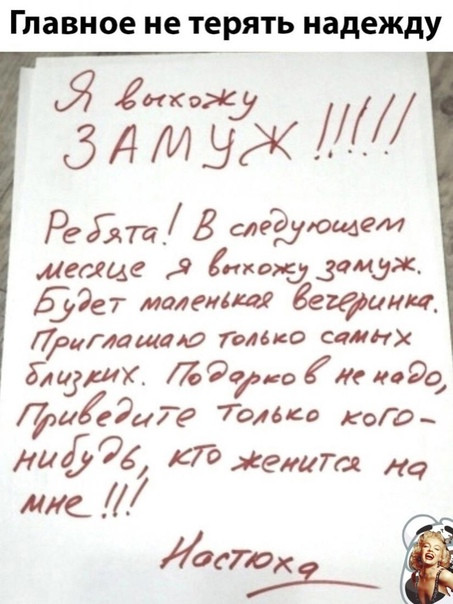 Главное не терять надежду
Я выхожу
ЗАМУЖ !!!!!
Ребята! В следующем
месяце я выхожу замуж.
Будет маленькая вечеринка.
Приглашаю только самых
близких. Подарков не надо,
Приведите только кого-
нибудь, кто женится на
мне !!!
Настюха